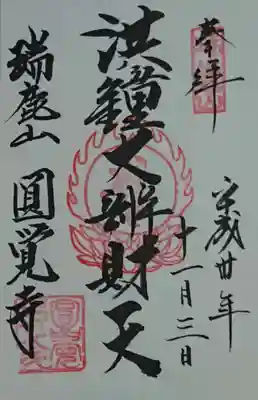 奉拝
平成廿年
十一月三日
洪鐘大辨財天
瑞鹿山
圓覚寺